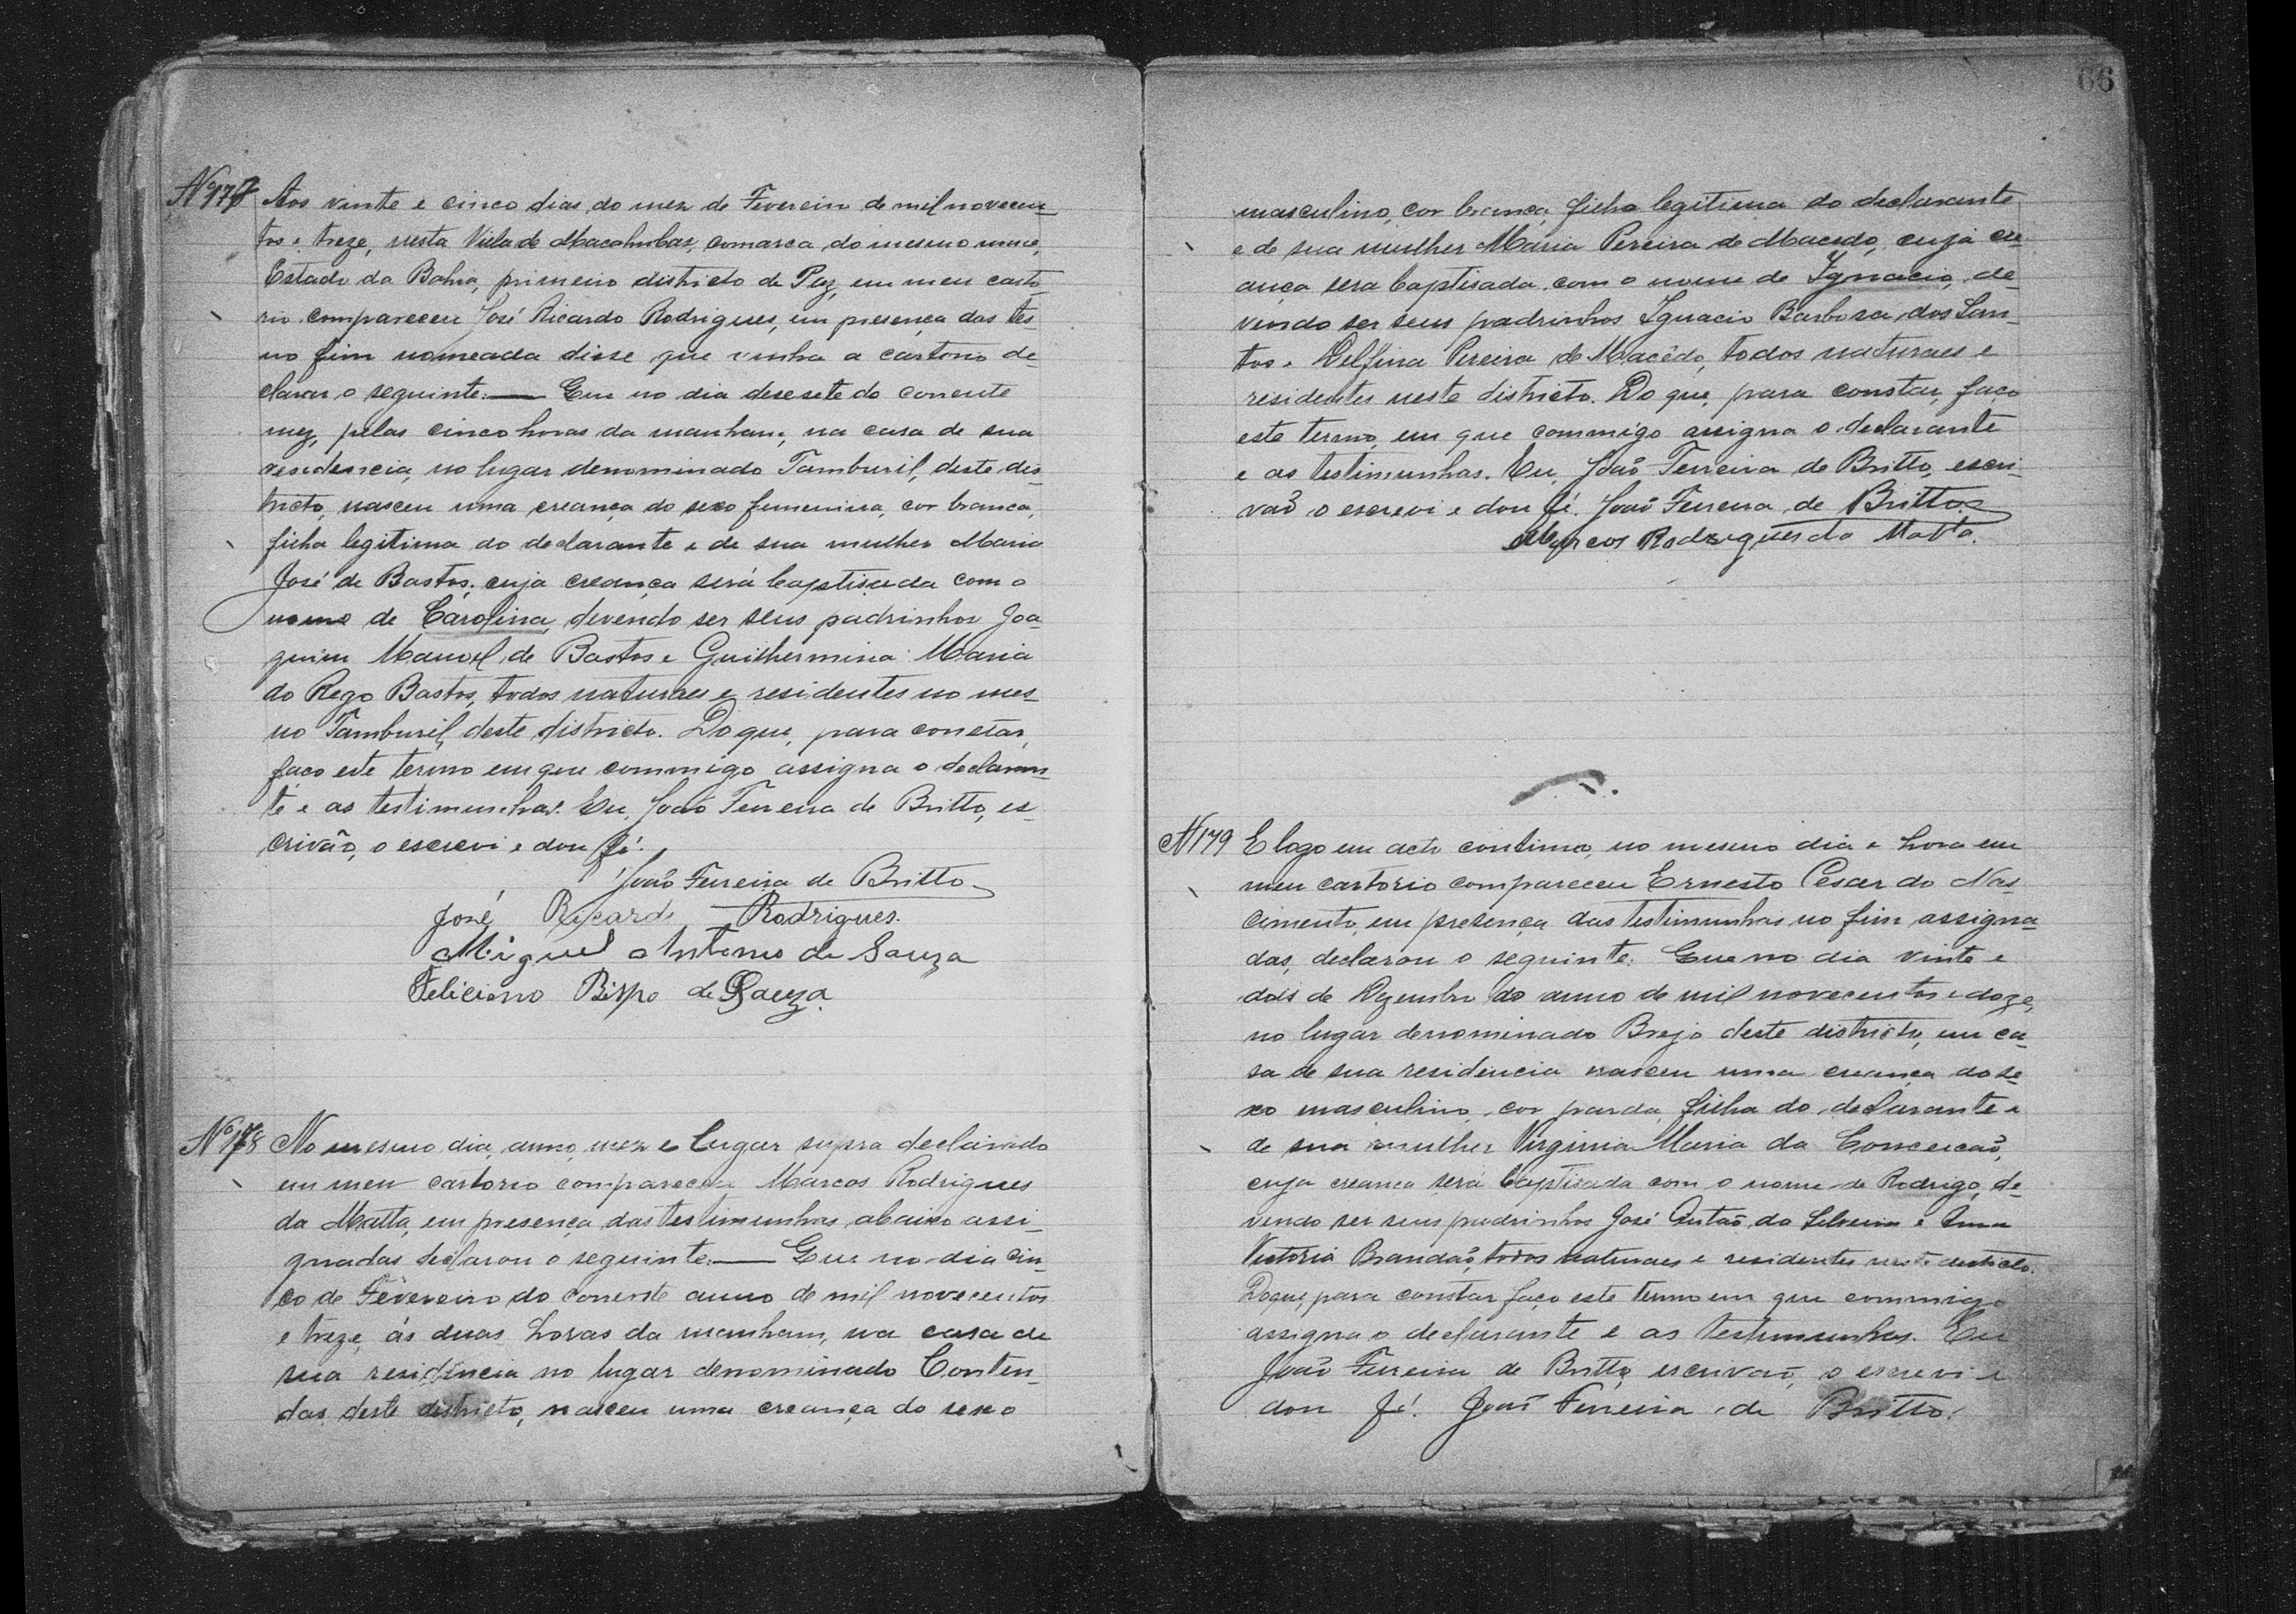 Nº 177 Aos vinte e cinco dias do mez de Fevereiro de mil novecen-
tos e treze, nesta Villa de Macahubas, comarca do mesmo nome,
Estado da Bahia, primeiro districto de Paz, em meu carto-
rio compareceu José Ricardo Rodrigues, em presença das tes
no fim nomeada disse que vinha a cartorio de-
clarar o seguinte:— Que no dia desesete do corrente
mez, pelas cinco horas da manham, na casa de sua
residencia, no lugar denominado Tamburil, deste dis-
tricto, nasceu uma creança do sexo femenina, cor branca,
filha legitima do declarante e de sua mulher Maria
José de Bastos, cuja creança será baptisada com o
nome de Carolina, devendo ser seus padrinhos Joa-
quim Manoel de Bastos e Guilhermina Maria
do Rego Bastos, todos naturaes e residentes no mes-
mo Tamburil, deste districto. Do que, para constar,
faço este termo em que commigo assigna o declaran-
te e as testimunhas. Eu, João Ferreira de Britto, es-
crivão, o escrevi e dou fé.
João Ferreira de Britto
José Ricardo Rodrigues.
Miguel Antonio de Souza
Feliciano Bispo de Souza.
Nº 178 No mesmo dia, anno, mez e lugar supra declarado
em meu cartorio compareceu Marcos Rodrigues
da Matta, em presença das testimunhas abaixo assi-
gnadas declarou o seguinte:— Que no dia cin-
co de Fevereiro do corrente anno de mil novecentos
e treze, ás duas horas da manham, na casa de
sua residencia no lugar denominado Conten-
das, deste districto, nasceu uma creança do sexo
66
masculino, cor branca, filha legitima do declarante
e de sua mulher Maria Pereira de Macedo, cuja cre-
ança sera baptisada com o nome de Ignacio, de-
vendo ser seus padrinhos Ignacio Barbosa dos San-
tos e Delfina Pereira de Macêdo, todos naturaes e
residentes neste districto. Do que, para constar, faço
este termo, em que commigo assigna o declarante
e as testimunhas. Eu, João Ferreira de Britto, escri-
vaõ o escrevi e dou fé. João Ferreira de Britto
Marcos Rodrigues da Matta.
Nº 179 E logo em acto continuo, no mesmo dia e hora em
meu cartorio compareceu Ernesto Cesar do Nas-
cimento, em presença das testimunhas no fim assigna-
das, declarou o seguinte: Que no dia vinte e
dois de Dezembro do anno de mil novecentos e doze,
no lugar denominado Brejo deste districto, em ca-
sa de sua residencia nasceu uma creança do se-
xo masculino, cor parda, filha do declarante e
de sua mulher Virginia Maria da Conceicaõ,
cuja creanca será baptisada com o nome de Rodrigo, de-
vendo ser seus padrinhos José Antaõ da Silveira e Anna
Victoria Brandaõ, todos naturaes e residentes neste districto.
Do que, para constar faço este termo em que commigo
assigna o declarante e as testimunhas. Eu
João Ferreira de Britto escrivaõ, o escrevi e
dou fé. João Ferreira de Britto.